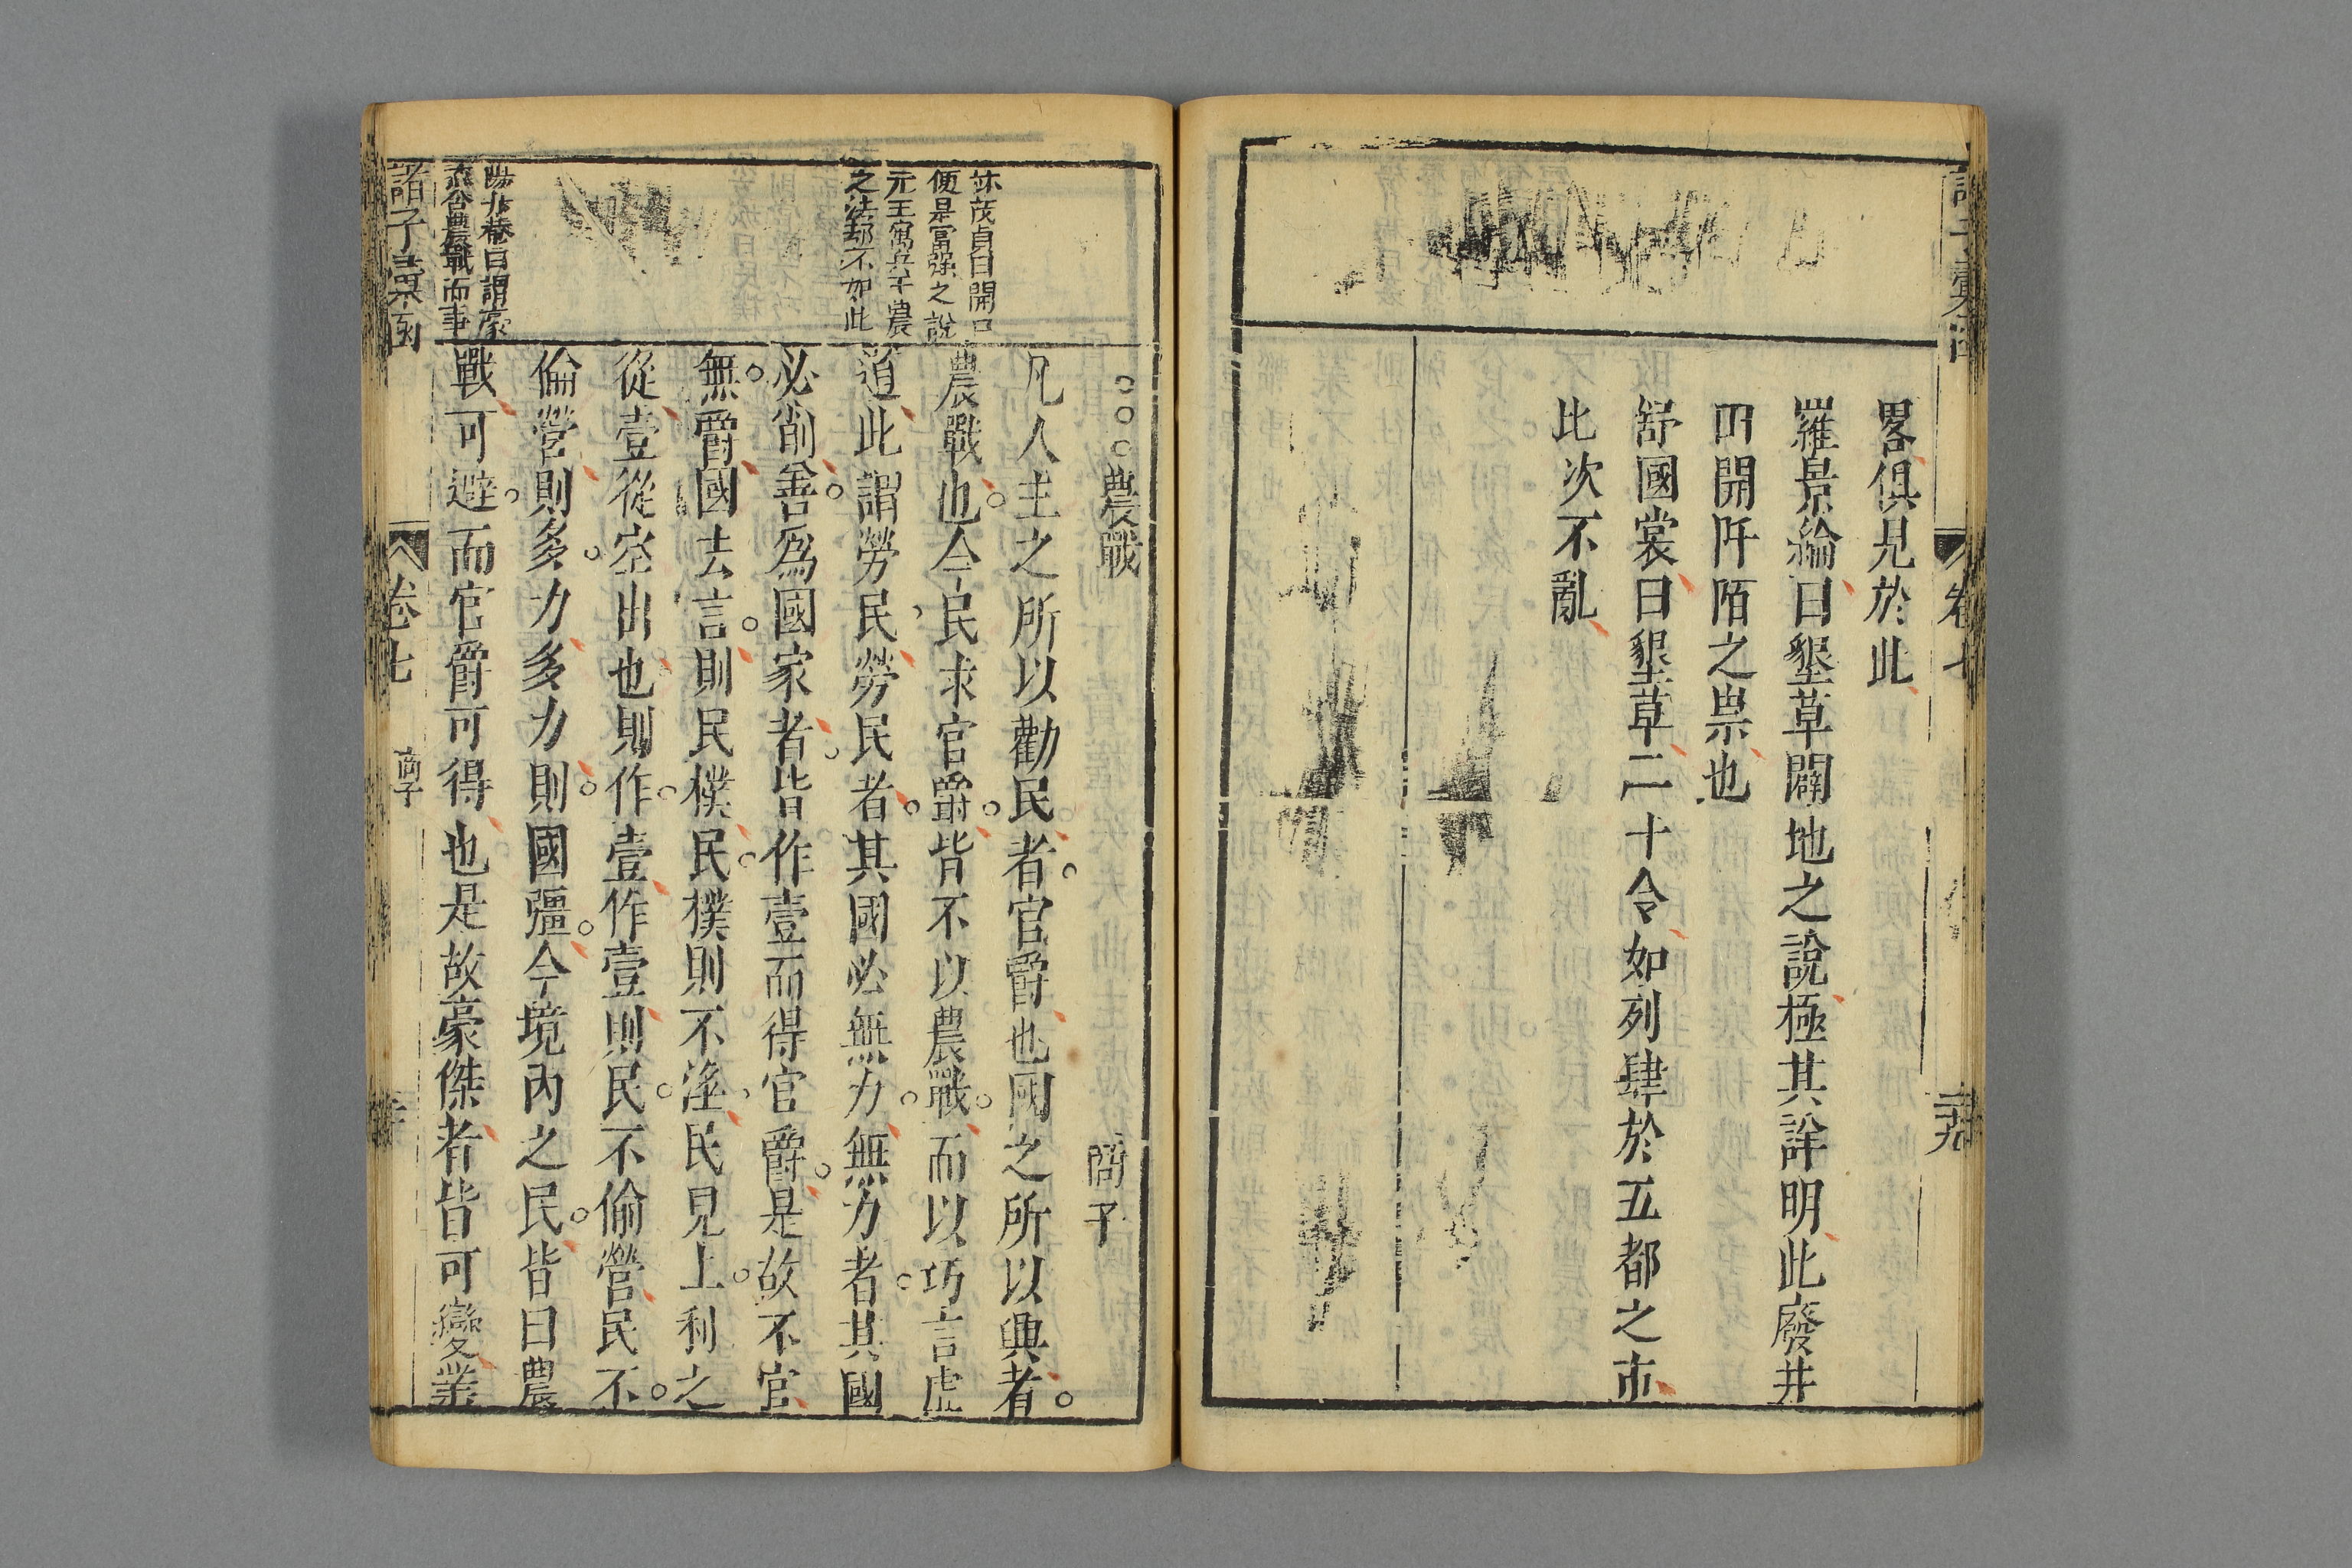 畧俱見於此
羅景綸曰墾草闢地之說極其詳明此廢井
田開阡陌之祟也
舒國裳曰墾草二十令如列肆於五都之市
比次不亂
卷七
農戰
商子
凡人主之所以勸民者官爵也國之所以興者
農戰也今民求官爵皆不以農戰而以巧言虛
道此謂勞民勞民者其國必無力無力者其國
必削善爲國家者皆作壹而得官爵是故不官
無爵國去言則民樸民樸則不淫民見上利之
從壹從空出也則作壹作壹則民不偷營民不
偷營則多力多力則國彊今境內之民皆曰農
戰可避而官爵可得也是故豪傑者皆可變業
茂貞曰開口
便是富强之說
元王寓兵于農
之法却不如此
曰謂豪
農戰而事
諸子彙函
卷七
商子